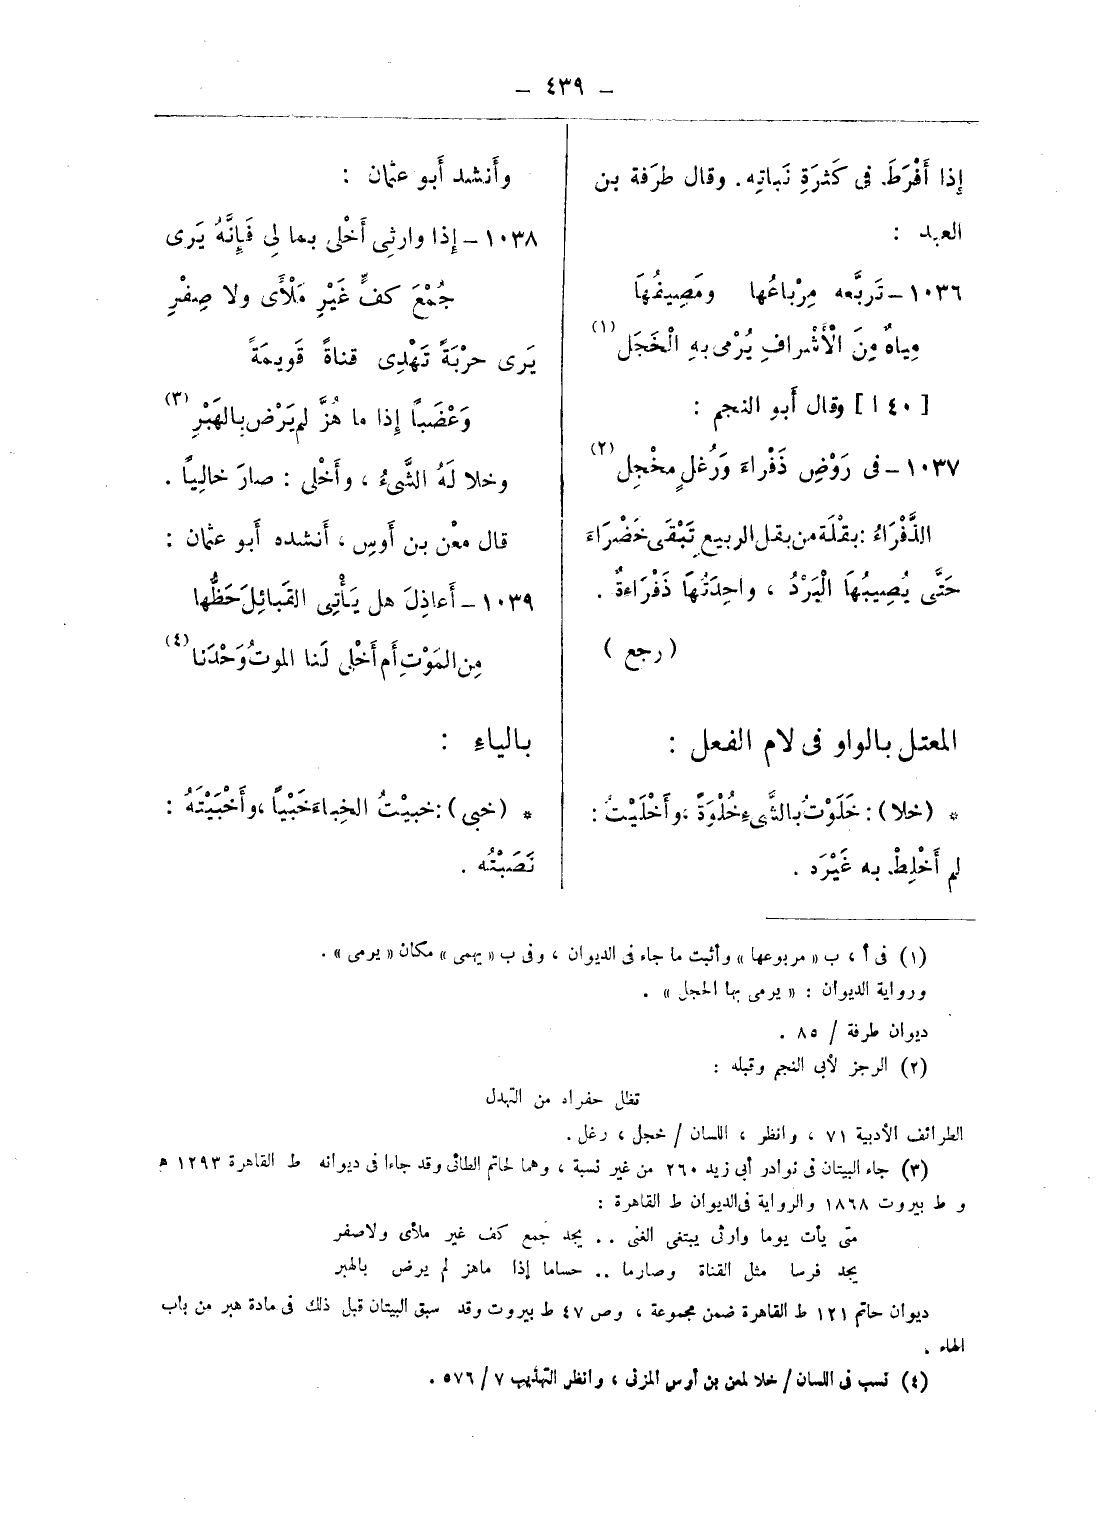 — ٤٣٩ —
إذا أَفْرَطَ فى كَثرَةِ نَباتِه. وقال طرَفة بن
العبد :
١٠٣٦ – تَربَّعه مِرْباعُها ومَصِيفُهَا
مِياهٌ مِنَ الْأَشْرافِ يُرْمى بهِ الْخَجَل (١)
[١٤٠ ا] وقال أَبو النجم :
١٠٣٧ – فى رَوْضٍ ذَفْراءَ وَرُغلٍ مخْجِلِ (٢)
الذَّفْرَاءُ : بقْلَة من بقل الربيعِ تَبْقَى خَضْرَاءَ
حَتَّى يُصِيبُهَا الْبَرْدُ ، واحِدَتُهَا ذَفْرَاءةٌ .
( رجع )
المعتل بالواو فى لام الفعل :
* (خلا) : خَلَوْتُ بالشَّىءِ خُلْوَةً ، وأَخْلَيْتُ :
لم أَخْلِطْ به غَيْرَه .
وأَنشد أَبو عثمان :
١٠٣٨ – إِذا وارثِى أَخْلى بمالِى فَإِنَّهُ يَرى
جُمْعَ كفٍّ غَيْرِ مَلْأَى ولا صِفْرِ
يَرى حرْبَةً تَهْدِى قناةً قَويمَةً
وَعْضَباً إِذا ما هُزَّ لم يَرْض بِالهَبْرِ (٣)
وخلا لَهُ الشَّىءُ ، وأَخْلى : صارَ خالِياً .
قال معْن بن أَوس ، أَنشده أَبو عثمان :
١٠٣٩ – أَعاذِلَ هل يَأْتِى القَبائِلَ حَظُّها
مِن المَوْتِ أم أَخْلى لَنا الموتُ وَحْدَنا (٤)
بالياءِ :
* (خبى) : خبيْتُ الخِباءَ خَبْياً ، وأَخْبَيْتَهُ :
نَصَبْتُه .
(١) فى أ ، ب « مربوعها » وأثبت ما جاء فى الديوان ، وفى ب « يهمى » مكان « يرمى » .
ورواية الديوان : « يرمى بها الحجل » .
ديوان طرفة / ٨٥ .
(٢) الرجز لأبى النجم وقبله :
تظل حفراه من التهدل
الطرائف الأدبية ٧١ ، وانظر ، اللسان / خجل ، رغل .
(٣) جاء البيتان فى نوادر أبى زيد ٢٦٠ من غير نسبة ، وهما لحاتم الطائى وقد جاءا فى ديوانه ط القاهرة ١٢٩٣ ه
و ط بيروت ١٨٦٨ والرواية فى الديوان ط القاهرة :
متى يأت يوما وارثى يبتغى الغنى .. يجد جُمع كف غير ملأى ولا صفر
يجد فرسا مثل القناة وصارما .. حساما إذا ماهز لم يرض بالهبر
ديوان حاتم ١٢١ ط القاهرة ضمن مجموعة ، وص ٤٧ ط بيروت وقد سبق البيتان قبل ذلك فى مادة هبر من باب
الهاء .
(٤) نسب فى اللسان / خلا لمعن بن أوس المزنى ، وانظر التهذيب ٧ / ٥٧٦ .